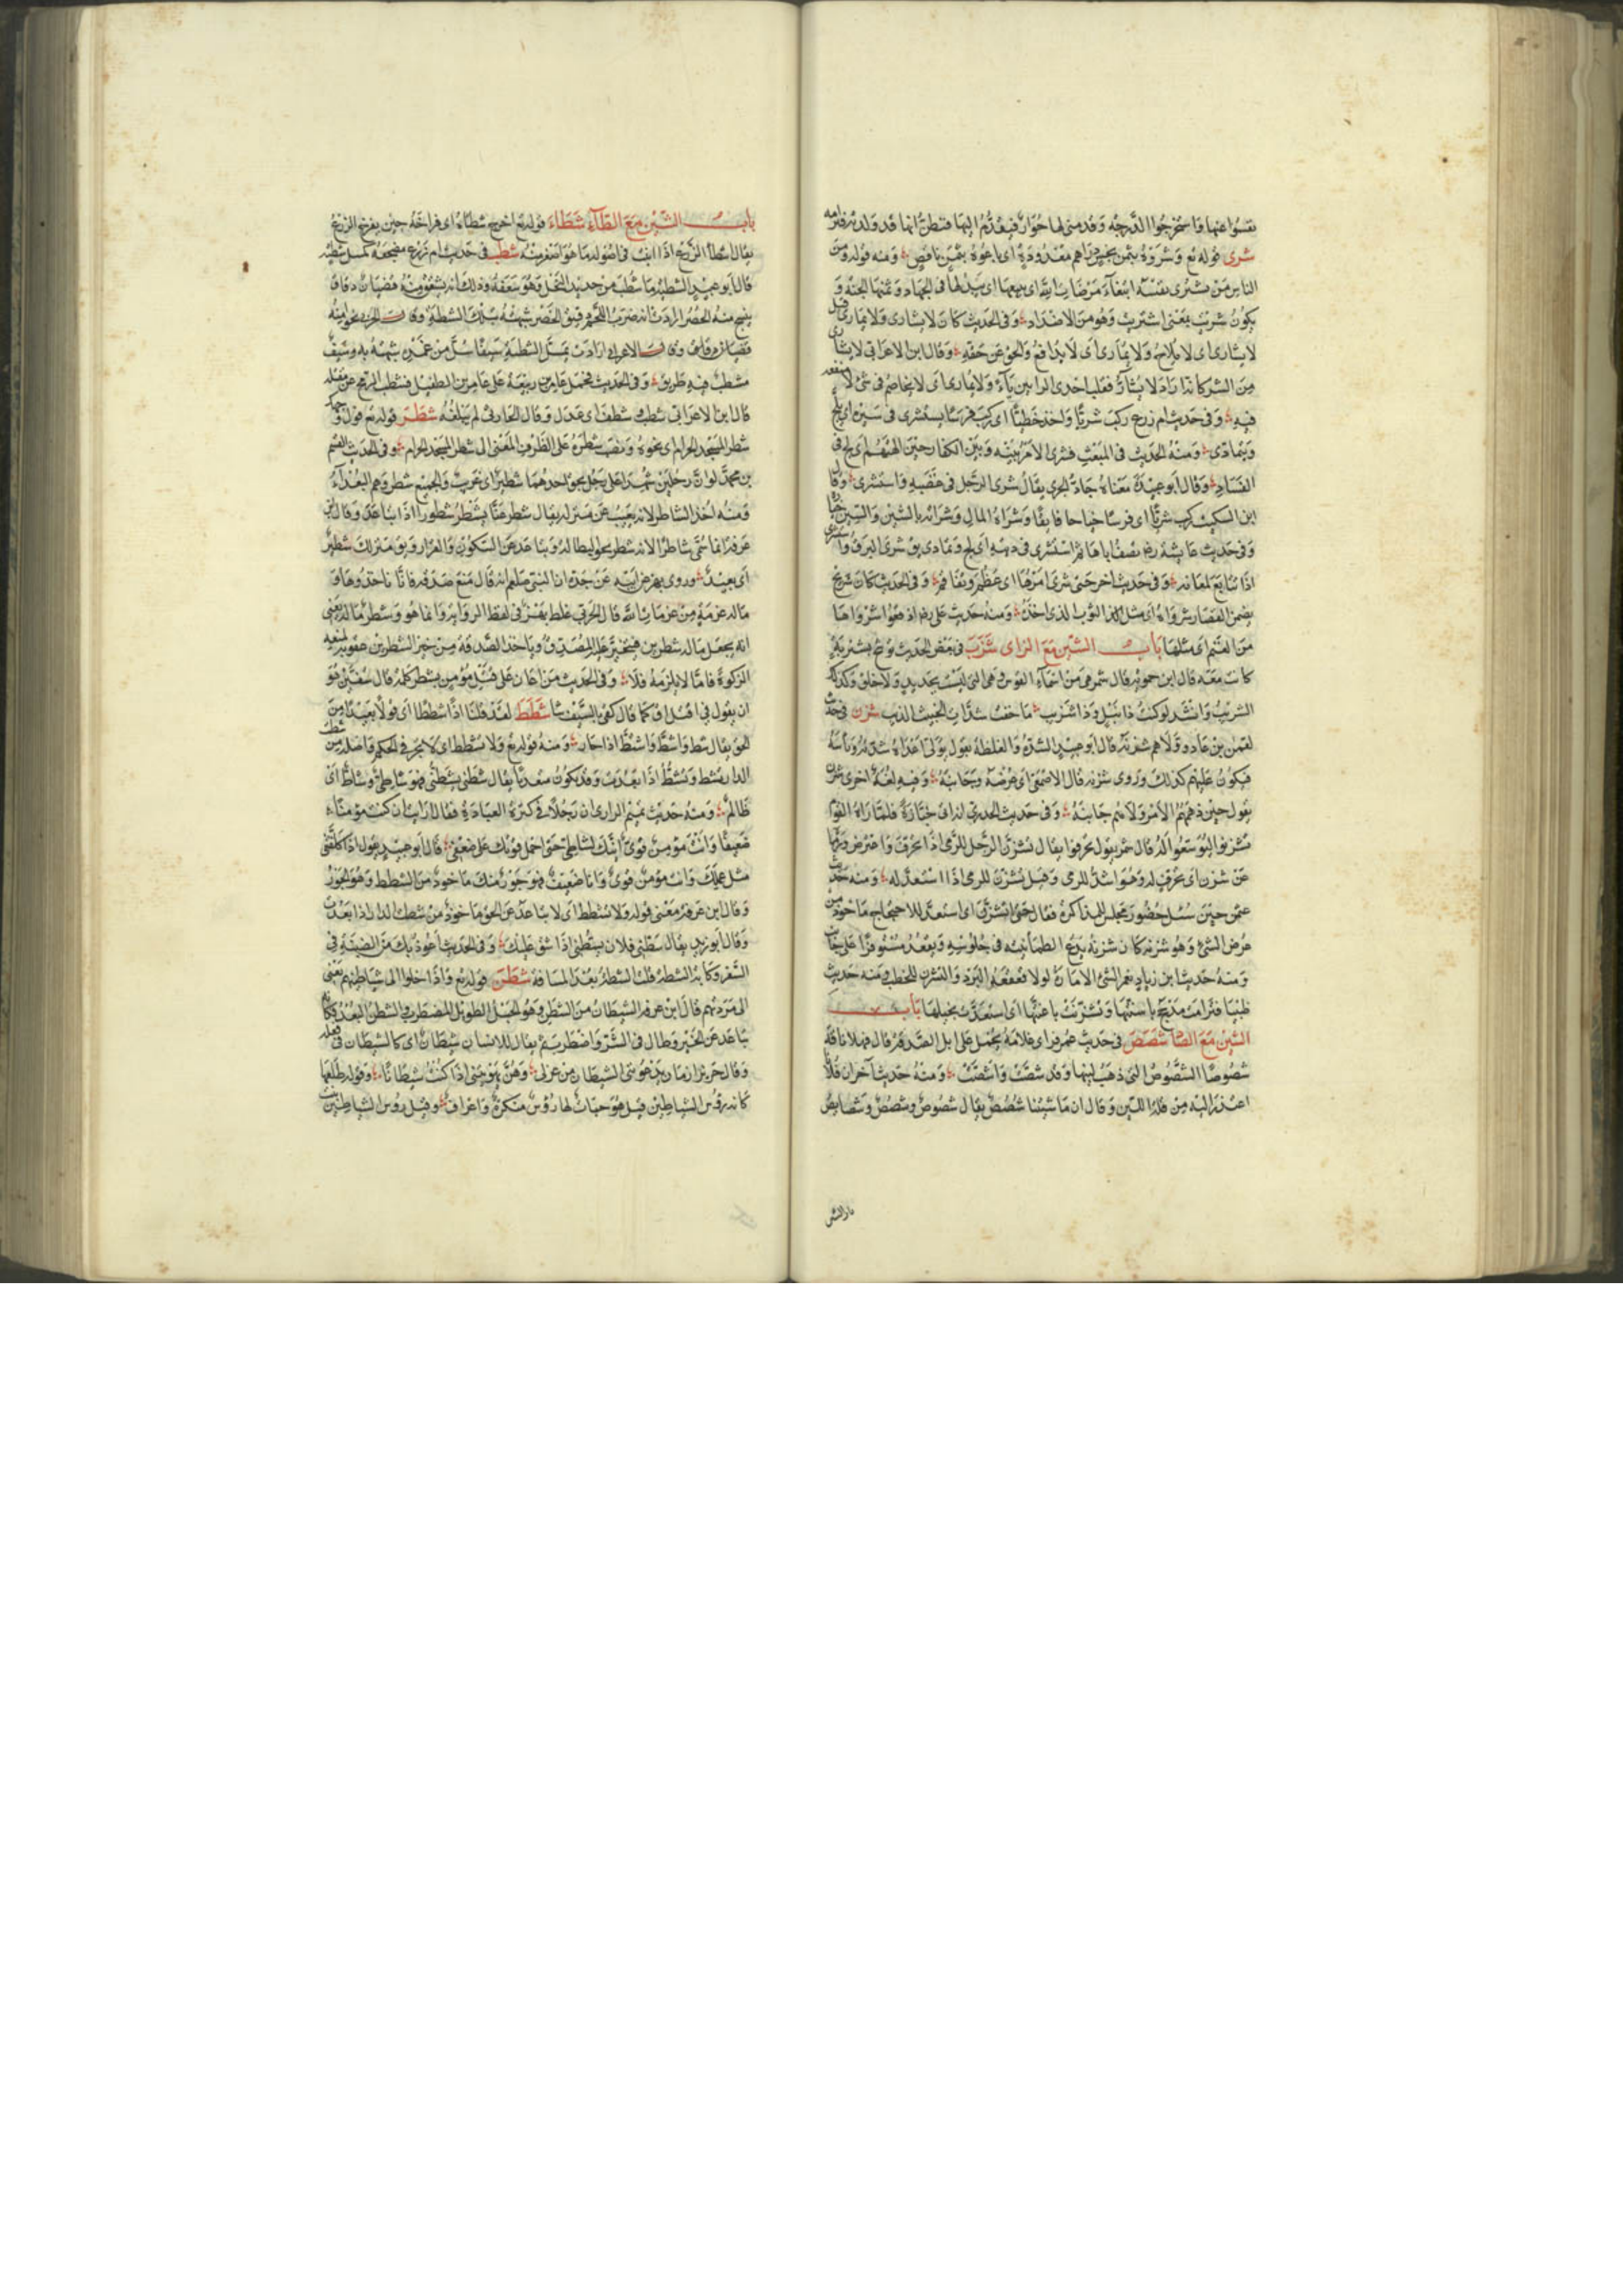 شرى قوله تع وشروه بثمن بخس دراهم معدودة اى باعوه بثمن ناقص ومنه قوله ومن
الناس من يشرى نفسه ابتغاء مرضات الله اى يبيعها اى يبذلها فى الجهاد وثمنها الجنة و
يكون شريت بمعنى اشتريت وهو من الاضداد وفى الحديث كان لا يشارى ولا يمارى قيل
لا يشارى اى لا يلاج ولا يمارى اى لا يدافع ذا الحق عن حقه وقال ابن الاعرابى لا يشارى
من الشر كانه اراد لا يشارّ فقلب احدى الرايين ياء ولا يمارى اى لا يخاصم فى شئ
فيه وفى حديث ام زرع ركب شريا واخذ خطيا اى ركب فرسا يستشرى فى سيره اى يلج
ويتمادى ومنه الحديث فى المبعث فشرى الامر بينه وبين الكفار حين سب الهتهم اى لج فى
الفساد وقال ابو عبيدة معناه جاد الجرى يقال شرى الرجل فى غضبه واستشرى وقال
ابن السكيت ركب شريا اى فرسا خيارا فايقا وشراة المال وسراته بالشين والسين خياره
وفى حديث عايشة رض تصف اباها ثم استشرى فى دينه اى لج وتمادى يق شرى البرق واستشرى
اذا تتابع لمعانه وفى حديث اخر حتى شرى امرهما اى عظم وتفاقم وفى الحديث كان شريح
يضمن القصار شرواه اى مثل الثوب الذى اخذه ومنه حديث على رض ادفعوا شرواها
من الغنم اى مثلها باب الشين مع الزاى شزب فى بعض الحديث توشح بشزبة
كانت معه قال ابن حمويه قال شمر هى من اسماء القوس وهى التى ليست بجديد ولا خلق وكذلك
الشزيب وانشد لو كنت ذا نبل وذا شزيب ما خفت شدات الخبيث الذيب شزن فى حديث
لقمن بن عاد وولاهم شزنه قال ابو عبيد الشدة والغلظة يقول يولى اعداءه شدته وباسه
فيكون عليهم كذلك وروى شزنه قال الاصمعى اى عرضه وجانبه وفيه لغة اخرى شزن
يقول حين دهمهم الامر ولاهم جانبه وفى حديث الخدرى انه اتى جنازة فلما راه القوم
تشزنوا ليوسعوا له قال شمر يقول تحرفوا يقال تشزن الرجل للرمى اذا تحرف واعترض ورماه
عن شزن اى تحرف له وهو اشد للرمى وقيل تشزن للرمى اذا استعد له ومنه حديث
عثمن حين سئل حضور مجلس للمذاكرة فقال حتى اتشزن اى استعد للاحتجاج ماخوذ من
عرض الشئ وهو شزنه كان شزنه يدع الطمانينة فى جلوسه ويقعد مستوفزا على جانب
ومنه حديث ابن زياد نعم الشئ الامارة لولا قعقعة البرد والتشزن للخطب ومنه حديث
ظبيان فترامت مذحج باسنتها وتشزنت باعنتها اى استعدت بخيلها باب
الشين مع الصاد شصص فى حديث عمر فراى غلامه يحمل على ابل الصدقة قال فهلا ناقة
شصوصا الشصوص التى ذهب لبنها وقد شصت واشصت ومنه حديث اخر ان فلانا
اعتذر اليه من قلة اللبن وقال ان ماشيتنا شصص يقال شصوص وشصص وشصايص
باب الشين
باب الشين مع الطاء شطاء قوله تع اخرج شطاه اى فراخه حين يفرخ الزرع
قال ابو عبيد الشطبة ما شطب من جريد النخل وهو سعفه وذلك انه يشقق منه قضبان دقاق
ينسج منه الحصر ارادت انه ضرب اللحم دقيق الخصر شبهته بتلك الشطبة
وقال ابن الاعرابى ارادت بمسل الشطبة سيفا سل من غمده شبهته به وسيف
مشطب فيه طريق وفى الحديث فحمل عامر بن ربيعة على عامر بن الطفيل فشطب الرمح عن مقتله
قال ابن الاعرابى شطب شطف اى عدل وقال الحاربى لم يبلغه شطر قوله تع فول وجهك
شطر المسجد الحرام اى نحوه ونصب شطره على الظرف المعنى الى شطر المسجد الحرام وفى الحديث القسم
بن محمد لو ان رجلين شهدا على رجل بحق احدهما شطير اى غريب والجميع شطر وهم البعداء
ومنه اخذ الشاطر لانه يغيب عن منزله يقال شطر عنا يشطر شطورا اذا تباعد وقال ابن
عرفة انما سمى شاطرا لانه شطر نحو البطالة وتباعد عن السكون والقرار ويق منزلك شطير
اى بعيد وروى بهز عن ابيه عن جده ان النبى صلعم انه قال منع صدقة فانا ناخذوها و
ماله عزمة من عزمات الله قال الحربى غلط بهز فى لفظ الرواية وانما هو وشطر ماله يعنى
انه يجعل ماله شطرين فيتخير عليه المصدق وياخذ الصدقة من خير الشطرين عقوبة لمنعه
الزكوة فاما لا يلزمه فلا وفى الحديث من اعان على قتل مؤمن بشطر كلمة قال سفين هو
ان يقول فى اقتل اق كما قال كفى بالسيف شا شطط لقد قلنا اذا شططا اى قولا بعيدا من
الحق يقال شط واشط واشتط اذا جار ومنه قوله تع ولا تشطط اى لا تجر فى الحكم واصله من شطت
الدار تشط وتشط اذا بعدت وقد يكون متعديا يقال شطنى يشطنى فهو شاطى وشاط اى
ظالم ومنه حديث تميم الدارى ان رجلا كلمه فى كثرة العبادة فقال ارايت ان كنت مؤمنا
ضعيفا وانت مؤمن قوى انك لشاطى حتى احمل قوتك على ضعفى قال ابو عبيد يقول اذا كلفتنى
مثل عملك وانت مؤمن قوى وانا ضعيف فهو جور منك ماخوذ من الشطط وهو الجور
وقال ابن عرفة معنى قوله ولا تشطط اى لا تباعد عن الحق ماخوذ من شطت الدار اذا بعدت
وقال ابو زيد يقال شطنى فلان يشطنى اذا شق عليك وفى الحديث اعوذ بك من الضبنة فى
السفر وكابة الشطة قلت الشطة بعد المسافة شطن قوله تع واذا خلوا الى شياطينهم يعنى
الى مردتهم قال ابن عرفة الشيطان من الشطن وهو الحبل الطويل المضطرب والشطن البعد فكانه
تباعد عن الخير وطال فى الشر واضطرب ثم يقال للانسان شيطان اى كالشيطان فى فعله
وقال جرير ازمان يدعوننى الشيطان من غزلى وهن يهويننى اذ كنت شيطانا وقوله طلعها
كانه رؤس الشياطين قيل هو حيات لها رؤس منكرة واعراف وقيل رؤس الشياطين نبت